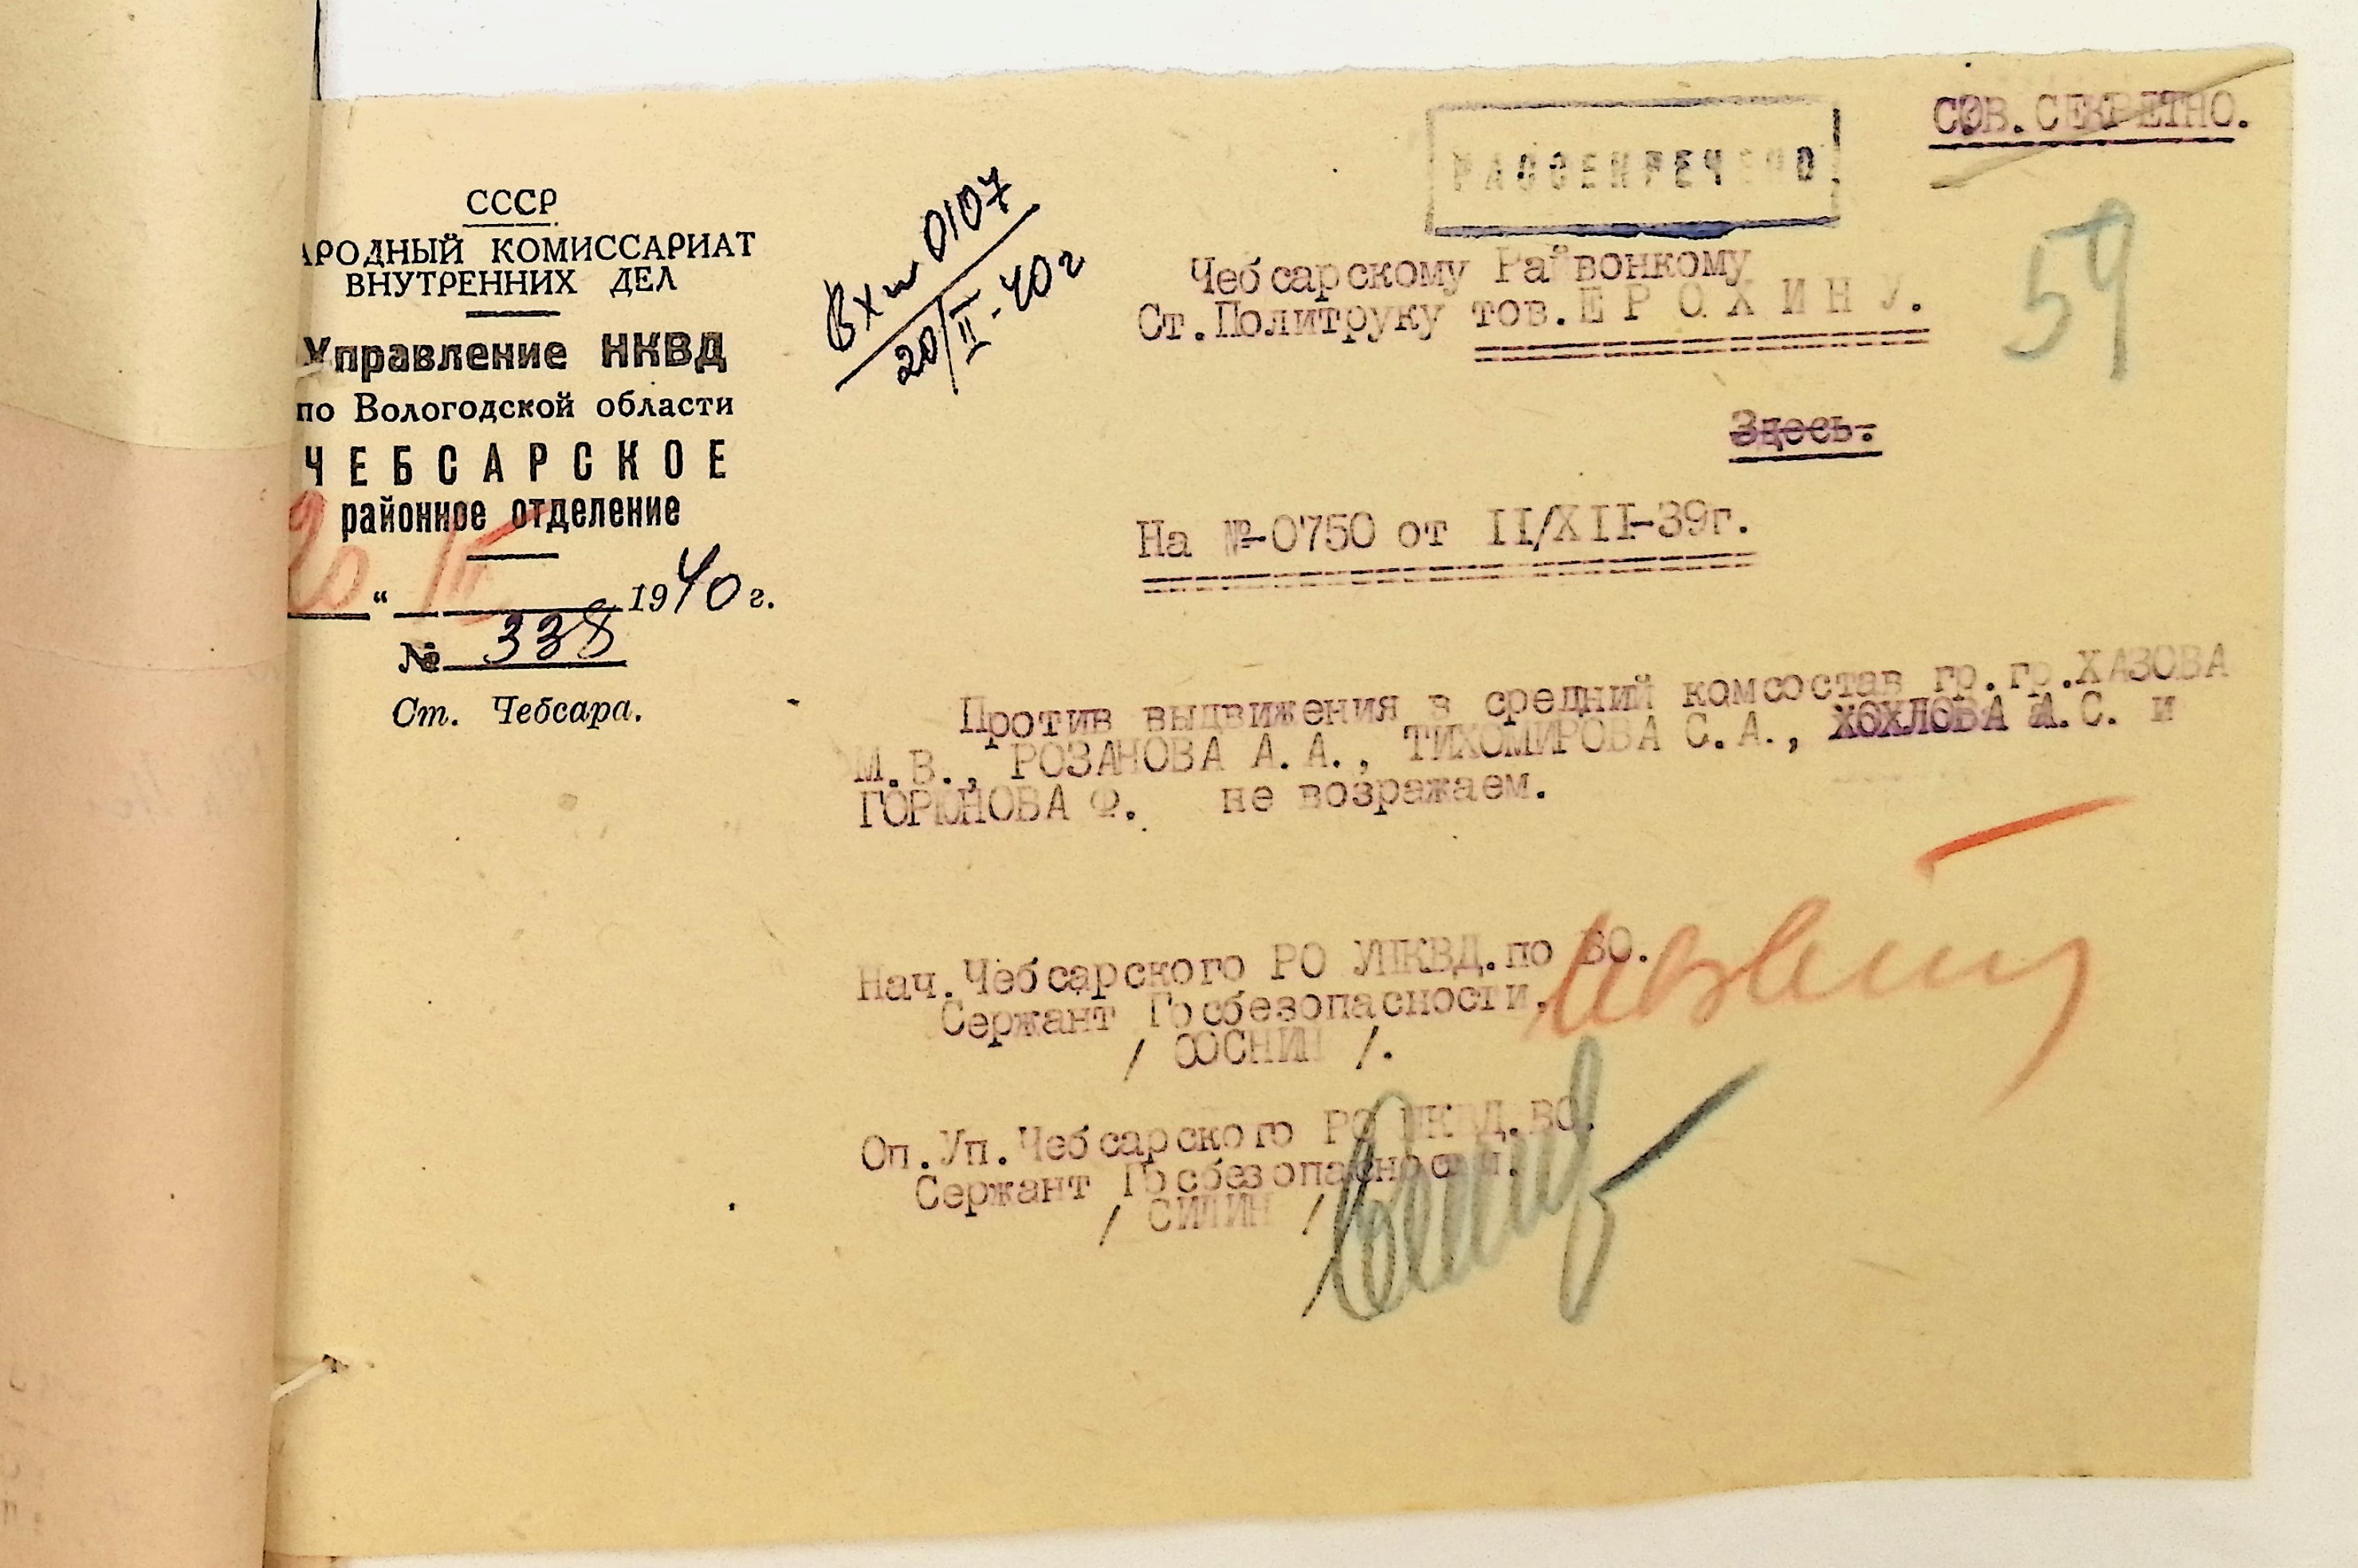 СССР
АРОДНЫЙ КОМИССАРИАТ
ВНУТРЕННИХ ДЕЛ
Управление НКВД
по Вологодской области
ЧЕБСАРСКОЕ
районное отделение
20 " II 1940 г.
№ 338
Ст. Чебсара.
Вх № 0107
20/II-40 г
РАССЕКРЕЧЕНО
СОВ.СЕКРЕТНО.
59
Чебсарскому Райвонкому
Ст.Политруку тов.ЕРОХИНУ.
Здесь.
На №-0750 от II/XII-39г.
Против выдвижения в средний комсостав гр.гр.ХАЗОВА
М.В., РОЗАНОВА А.А., ТИХОМИРОВА С.А., ХОХЛОВА А.С. и
ГОРЮНОВА Ф. не возражаем.
Нач.Чебсарского РО УНКВД.по ВО.
Сержант Госбезопасности,
/ СОСНИН /.
Оп.Уп.Чебсарского РО НКВД.ВО.
Сержант Госбезопасности.
/ СИЛИН /